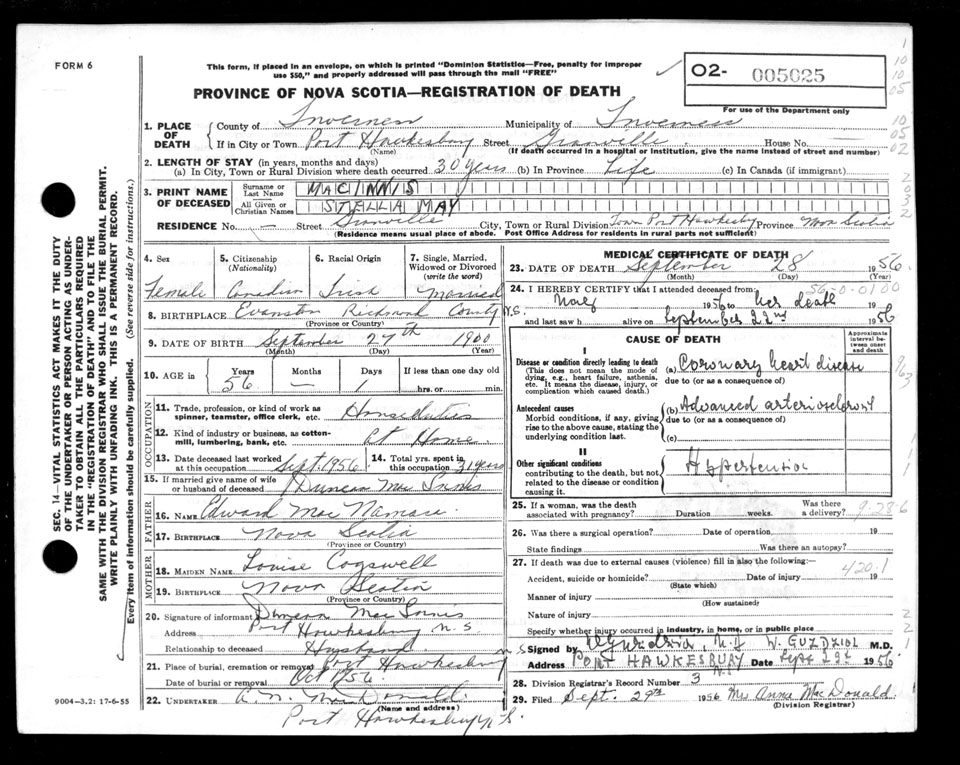 FORM 6
This form, if placed in an envelope, on which is printed "Dominion Statistics—Free, penalty for improper
use $50," and properly addressed will pass through the mail "FREE"
O2- 005025
For use of the Department only
PROVINCE OF NOVA SCOTIA—REGISTRATION OF DEATH
1. PLACE OF DEATH
County of Inverness Municipality of Inverness
If in City or Town Port Hawkesbury Street Granville House No.
(Name) (If death occurred in a hospital or institution, give the name instead of street and number)
2. LENGTH OF STAY (in years, months and days)
(a) In City, Town or Rural Division where death occurred 30 years (b) In Province Life (c) In Canada (if immigrant)
3. PRINT NAME OF DECEASED
Surname or Last Name MACINNIS
All Given or Christian Names STELLA MAY
RESIDENCE No. — Street Granville City, Town or Rural Division Town Port Hawkesbury Province Nova Scotia
(Residence means usual place of abode. Post Office Address for residents in rural parts not sufficient)
4. Sex
Female
5. Citizenship
(Nationality)
Canadian
6. Racial Origin
Irish
7. Single, Married,
Widowed or Divorced
(write the word)
Married
8. BIRTHPLACE Evanston Richmond County N.S.
(Province or Country)
9. DATE OF BIRTH September 27th 1900
(Month) (Day) (Year)
10. AGE in
Years Months Days If less than one day old
56 — 1 hrs. or min.
OCCUPATION
11. Trade, profession, or kind of work as
spinner, teamster, office clerk, etc. House Duties
12. Kind of industry or business, as cotton-
mill, lumbering, bank, etc. At Home.
13. Date deceased last worked
at this occupation Sept. 1956
14. Total yrs. spent in
this occupation 31 years
15. If married give name of wife
or husband of deceased Duncan Mac Innis
FATHER
16. NAME Edward Mac Namara
17. BIRTHPLACE Nova Scotia
(Province or Country)
MOTHER
18. MAIDEN NAME Louise Cogswell
19. BIRTHPLACE Nova Scotia
(Province or Country)
20. Signature of informant Duncan Mac Innis
Address Port Hawkesbury N.S
Relationship to deceased Husband
21. Place of burial, cremation or removal Port Hawkesbury N.S
Date of burial or removal Oct 1/56
22. UNDERTAKER A. N. McDonald
(Name and address)
Port Hawkesbury N.S.
9004–3.2: 17-6-55
MEDICAL CERTIFICATE OF DEATH
23. DATE OF DEATH September 28 1956.
(Month) (Day) (Year)
24. I HEREBY CERTIFY that I attended deceased from:
56-0-0100
1956 to her death 19
and last saw h alive on September 22nd 1956
CAUSE OF DEATH
Approximate
interval be-
tween onset
and death
I
Disease or condition directly leading to death
(This does not mean the mode of
dying, e.g., heart failure, asthenia,
etc. It means the disease, injury, or
complication which caused death.
(a) Coronary heart disease
due to (or as a consequence of)
Antecedent causes
Morbid conditions, if any, giving
rise to the above cause, stating the
underlying condition last.
(b) Advanced arteriosclerosis
due to (or as a consequence of)
(c)
II
Other significant conditions
contributing to the death, but not
related to the disease or condition
causing it.
Hypertension
25. If a woman, was the death
associated with pregnancy? Duration weeks. Was there
a delivery?
9-28-6
26. Was there a surgical operation? Date of operation 19
State findings Was there an autopsy?
27. If death was due to external causes (violence) fill in also the following:—
420.1
Accident, suicide or homicide? Date of injury 19
(State which)
Manner of injury
(How sustained)
Nature of injury
Specify whether injury occurred in industry, in home, or in public place
Signed by W. GUZDZIOL M.D.
Address PORT HAWKESBURY N.S Date Sept 29t 1956.
28. Division Registrar's Record Number 3
29. Filed Sept. 29th 1956 Mrs Anna MacDonald.
(Division Registrar)
SEC. 14—VITAL STATISTICS ACT MAKES IT THE DUTY
OF THE UNDERTAKER OR PERSON ACTING AS UNDER-
TAKER TO OBTAIN ALL THE PARTICULARS REQUIRED
IN THE "REGISTRATION OF DEATH" AND TO FILE THE
SAME WITH THE DIVISION REGISTRAR WHO SHALL ISSUE THE BURIAL PERMIT.
WRITE PLAINLY WITH UNFADING INK. THIS IS A PERMANENT RECORD.
Every item of information should be carefully supplied. (See reverse side for instructions.)